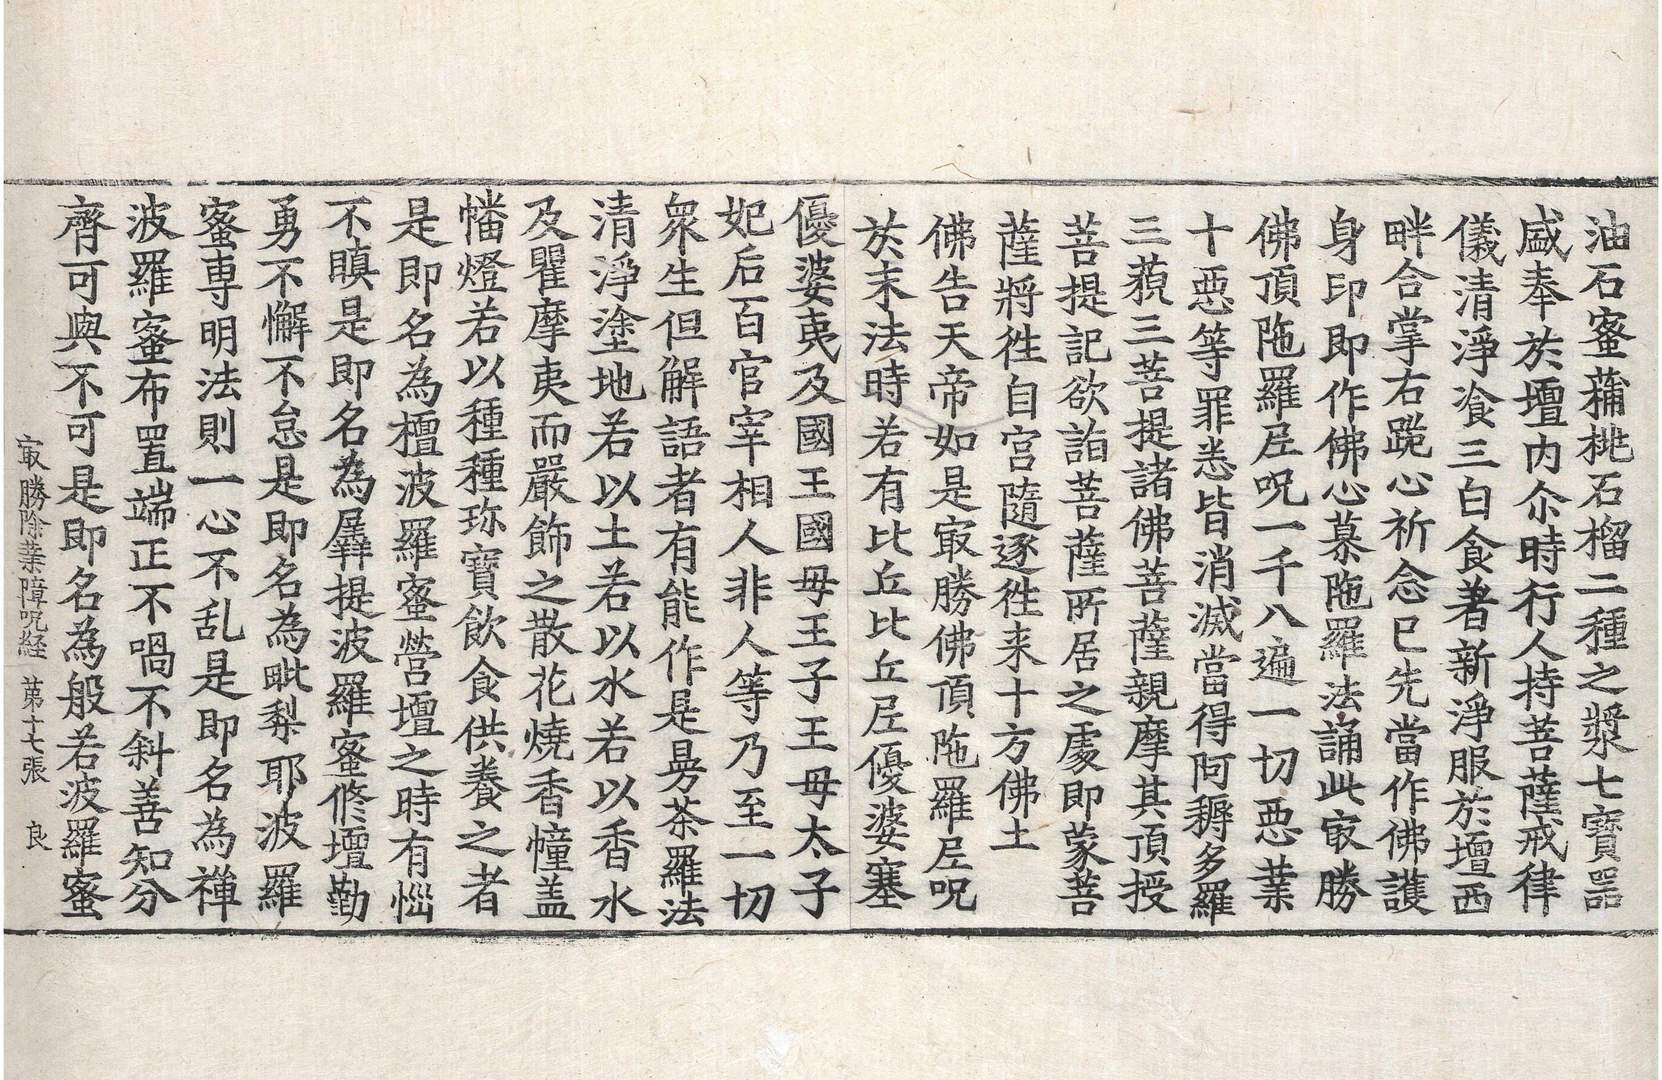 油石蜜蒱桃石榴二種之漿七寶器
盛奉於壇内尒時行人持菩薩戒律
儀清淨飡三白食著新淨服於壇西
畔合掌右跪心祈念已先當作佛護
身印即作佛心慕陁羅法誦此㝡勝
佛頂陁羅尼呪一千八遍一切惡業
十惡等罪悉皆消滅當得阿耨多羅
三藐三菩提諸佛菩薩親摩其頂授
菩提記欲詣菩薩所居之處即蒙菩
薩將徃自宫隨逐徃来十方佛土
佛告天帝如是㝡勝佛頂陁羅尼呪
於末法時若有比丘比丘尼優婆塞
優婆夷及國王國母王子王母太子
妃后百官宰相人非人等乃至一切
衆生但解語者有能作是曼茶羅法
清淨塗地若以土若以水若以香水
及瞿摩夷而嚴飾之散花燒香幢盖
幡燈若以種種珎寶飲食供養之者
是即名為檀波羅蜜營壇之時有惱
不瞋是即名為羼提波羅蜜脩壇勤
勇不懈不怠是即名為毗梨耶波羅
蜜専明法則一心不乱是即名為禪
波羅蜜布置端正不喎不斜善知分
齊可與不可是即名為般若波羅蜜
㝡勝除業障呪経 苐十七張 良